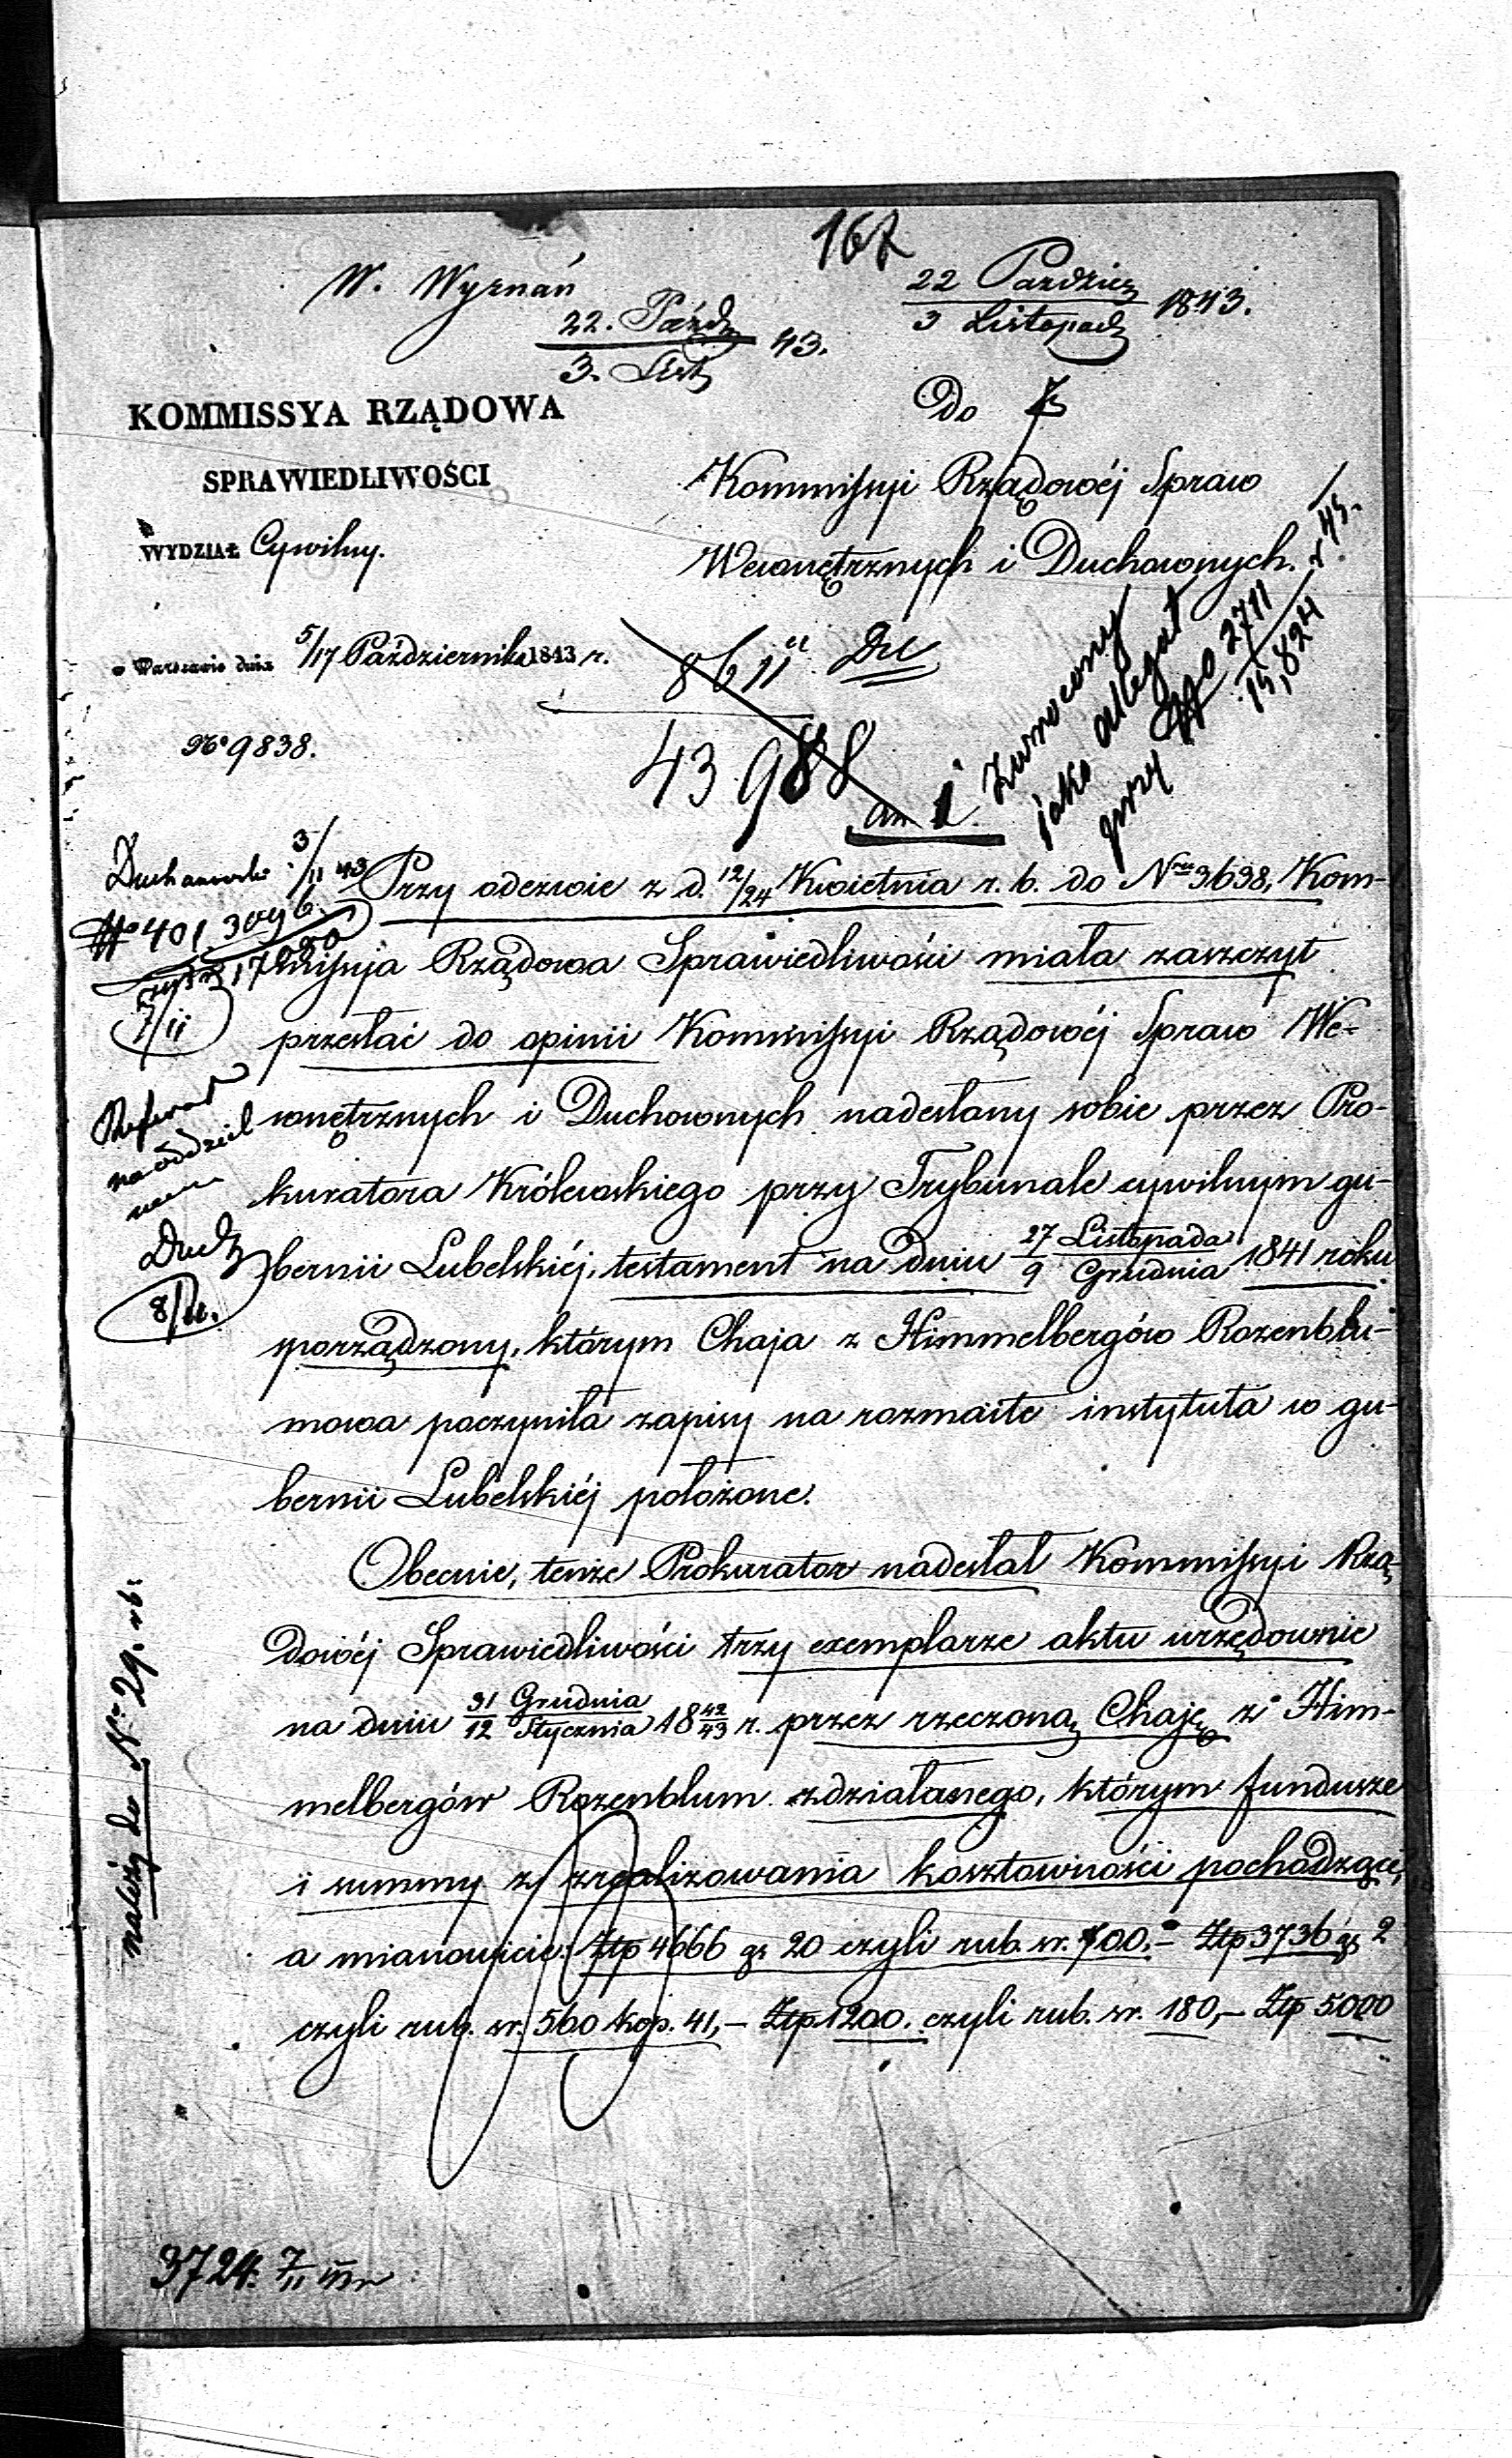 167
W. Wyznań
22. Paźdz 43.
3. List
22 Paździer 1843.
3 Listopad
KOMMISSYA RZĄDOWA
SPRAWIEDLIWOŚCI
WYDZIAŁ Cywilny.
w Warszawie dnia 5/17 Października 1843 r.
No 9838.
Do
Kommissyi Rządowéj Spraw
Wewnętrznych i Duchownych.
8611
43988
an 1
zwrocony
jako allegat
przy No 2711
15,824 r 45.
3/11 43
No 401 3096.
17220
7/11
Referat
na oddziel
8/11.
Przy odezwie z d. 12/24 Kwietnia r. b. do Nru 3638, Kom-
missyja Rządowa Sprawiedliwości miała zaszczyt
przesłać do opinii Kommissyi Rządowéj Spraw We-
wnętrznych i Duchownych nadesłany sobie przez Pro-
kuratora Królewskiego przy Trybunale cywilnym gu-
bernii Lubelskiéj, testament na dniu 27 Listopada/9 Grudnia 1841 roku
sporządzony, którym Chaja z Himmelbergów Rozenblu-
mowa poczyniła zapisy na rozmaite instytuta w gu-
bernii Lubelskiéj położone.
Obecnie, tenże Prokurator nadesłał Kommissyi Rzą-
dowéj Sprawiedliwości trzy exemplarze aktu urzędownie
na dniu 31 Grudnia/12 Stycznia 18 42/43 r. przez rzeczoną Chaję z Him-
melbergów Rozenblum zdziałanego, którym fundusze
i summy z zrealizowania kosztowności pochodzące,
a mianowicie: Złp 4666 gr 20 czyli rub. sr. 700.- Złp 3736 gr 2
czyli rub. sr. 560 kop. 41,- Złp 1200. czyli rub. sr. 180,- Złp 5000
należy do No 29. rb.
3724. 7/11